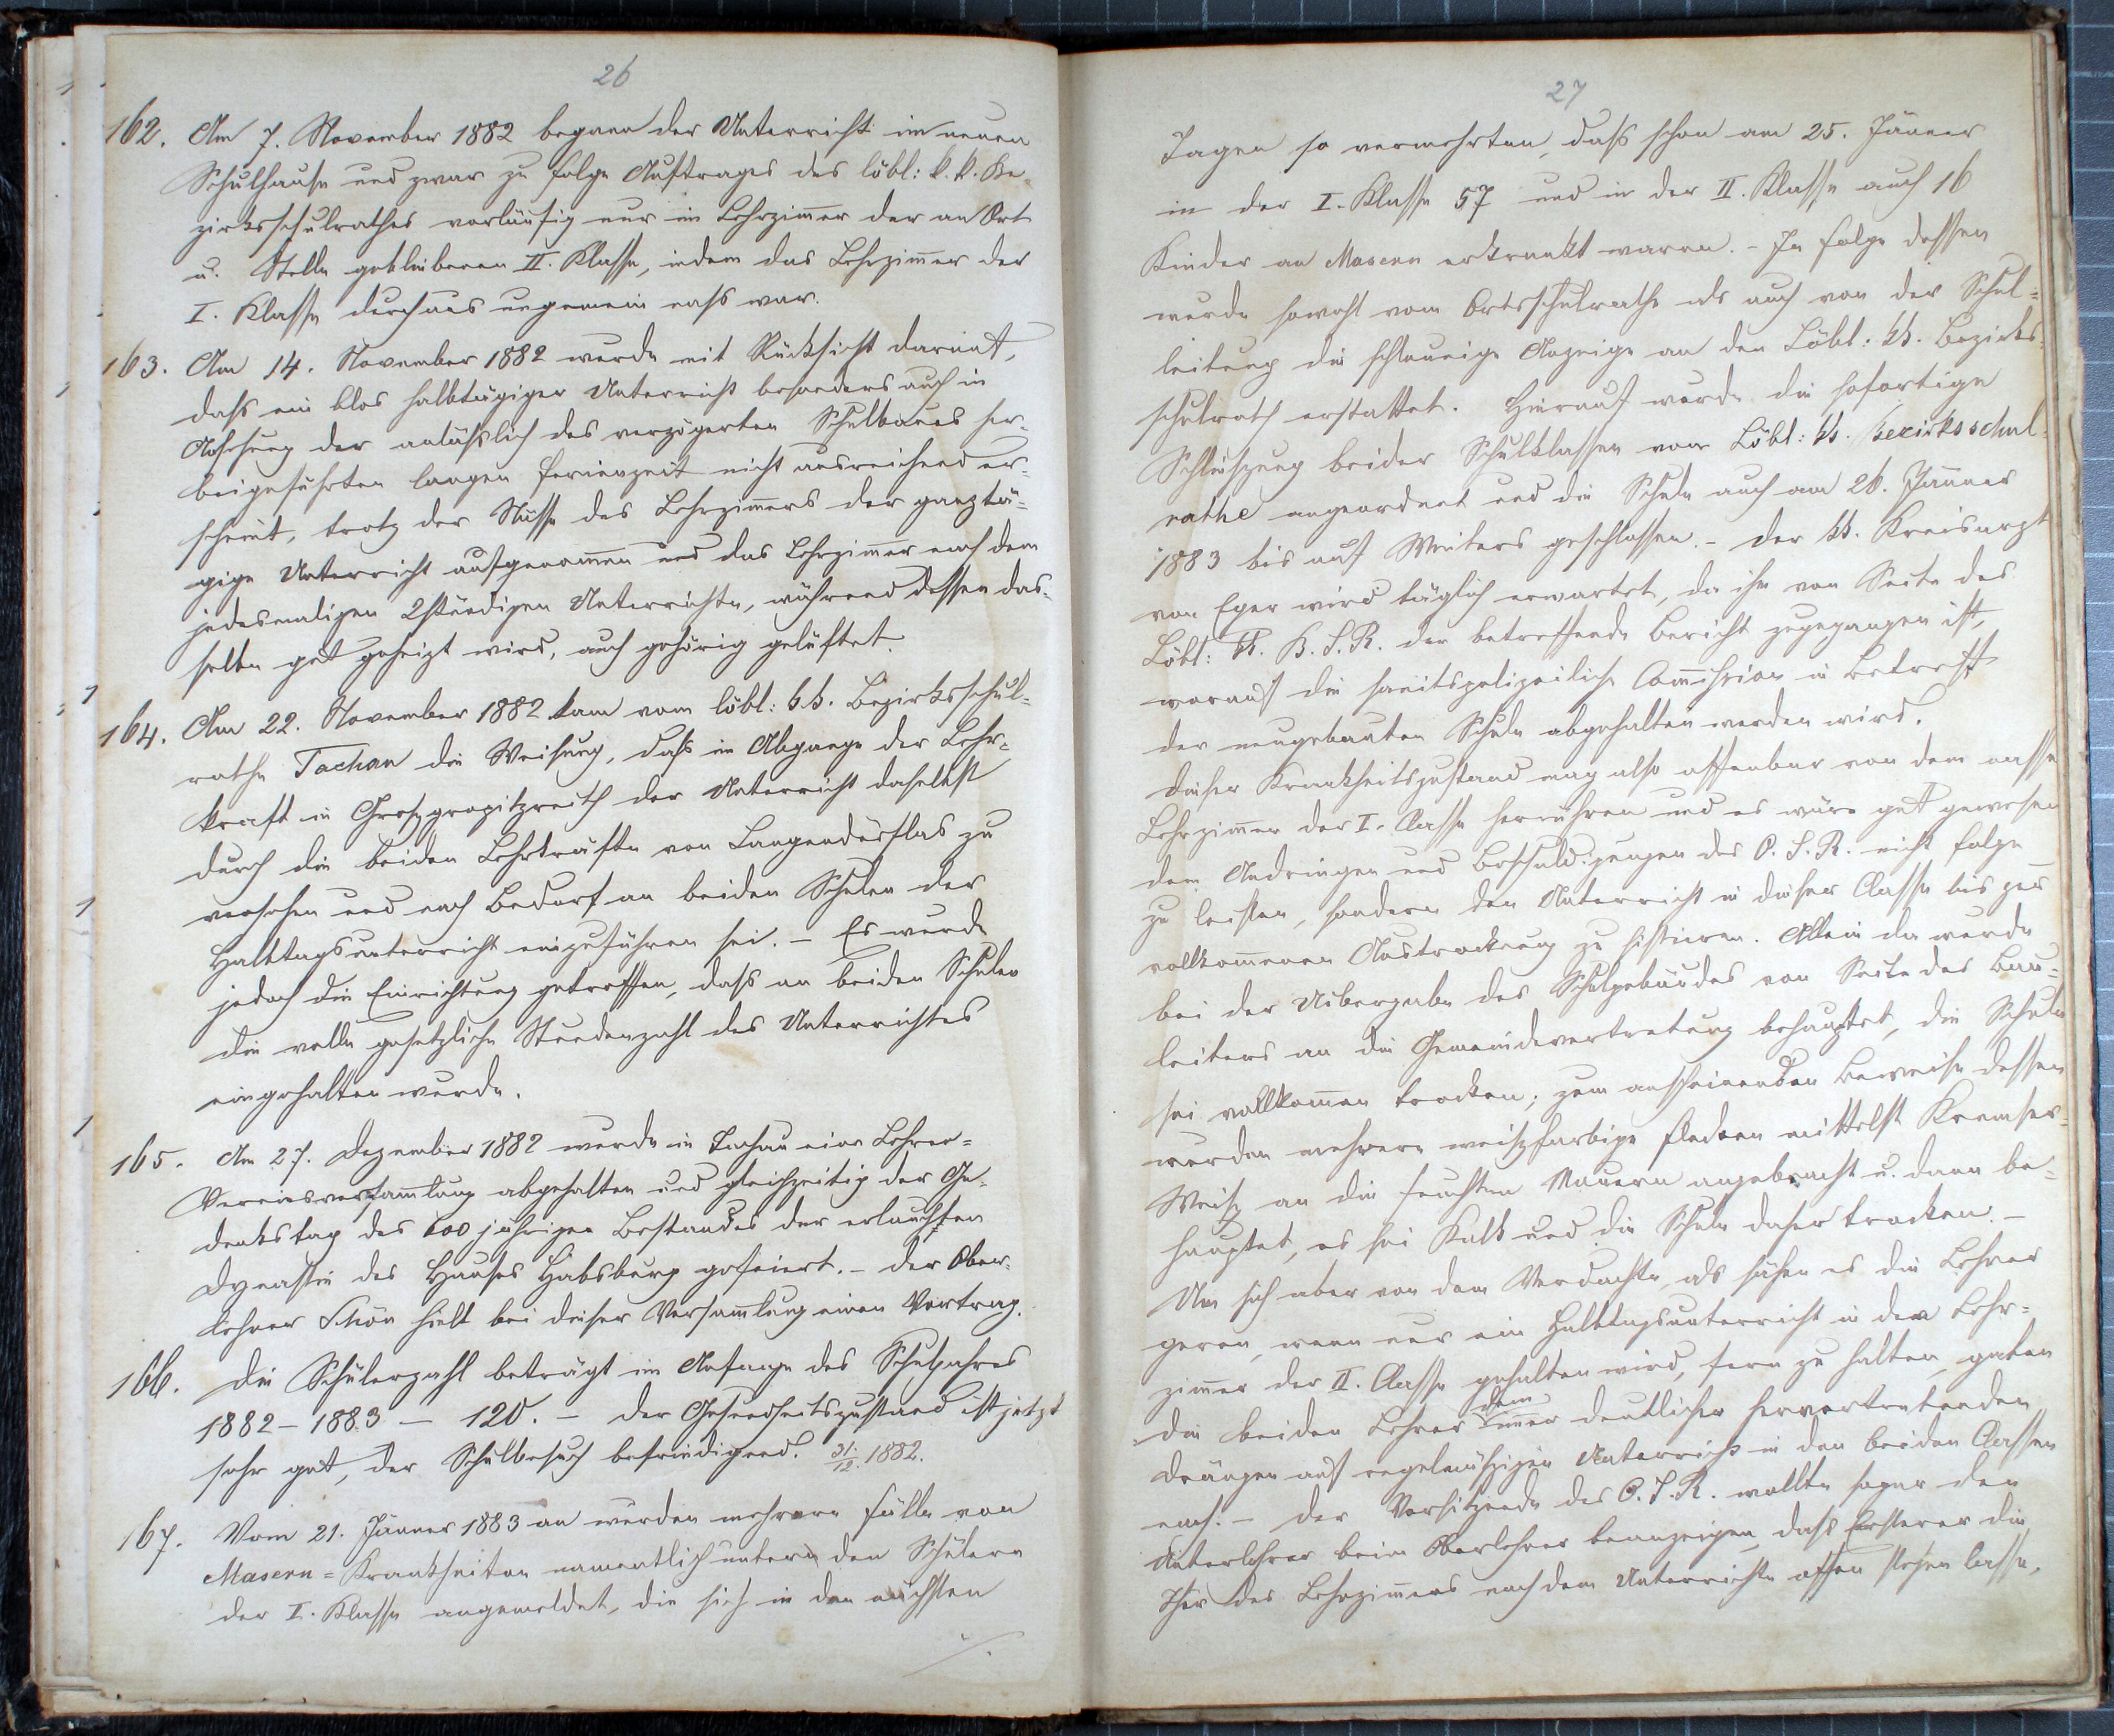 26
162. Am 7. November 1882 begann der Unterricht im neuen
Schulhause und zwar zu folge Auftrages des löbl: k. k. Be-
zirksschulrathes vorläufig nur im Lehrzimmer der an Ort
u. Stelle gebliebenen II. Klasse, indem das Lehrzimmer der
I. Klasse durchaus ungemein nass war.
163. Am 14. November 1882 wurde mit Rücksicht darauf,
dass ein blos halbtägiger Unterricht besonders auch in
Ansehung der anlässlich des verzögerten Schulbaues her-
beigeführten langen Ferienzeit nicht ausreichend er-
scheint, trotz der Nässe des Lehrzimmers der ganztä-
gige Unterricht aufgenommen und das Lehrzimmer nach dem
jedesmaligen 2stündigen Unterrichte, während dessen das-
selbe gut geheizt wird, auch gehörig gelüftet.
164. Am 22. November 1882 kam vom löbl: k.k. Bezirksschul-
rathe Tachau die Weisung, dass im Abgange der Lehr-
kraft in Grossgropitzreith der Unterricht daselbst
durch die beiden Lehrkräfte von Langendörflas zu
versehen und nach Bedarf an beiden Schulen der
Halbtagsunterricht einzuführen sei. – Es wurde
jedoch die Einrichtung getroffen, dass an beiden Schulen
die volle gesetzliche Stundenzahl des Unterrichtes
eingehalten wurde.
165. Am 27. Dezember 1882 wurde in Tachau eine Lehrer-
Vereinsversammlung abgehalten und gleichzeitig der Ge-
denkstag des 600 jährigen Bestandes der erlauchten
Dynastie des Hauses Habsburg gefeiert. – Der Ober-
lehrer Schön hielt bei dieser Versammlung einen Vortrag.
166. Die Schülerzahl beträgt im Anfange des Schuljahres
1882–1883 – 120. – Der Gesundheitszustand ist jetzt
sehr gut, der Schulbesuch befriedigend. 31./12. 1882.
167. Vom 21. Jänner 1883 an wurden mehrere Fälle von
Masern-Krankheiten namentlich unter den Schülern
der I. Klasse angemeldet, die sich in den nächsten
./.
27
Tagen so vermehrten, dass schon am 25. Jänner
in der I. Klasse 57 und in der II. Klasse auch 16
Kinder an Masern erkrankt waren. – In folge dessen
wurde sowohl vom Ortsschulrathe als auch von der Schul-
leitung die schleunige Anzeige an den Löbl: kk. Bezirks-
schulrath erstattet. Hierauf wurde die sofortige
Schliessung beider Schulklassen vom Löbl: kk. Bezirksschul-
rathe angeordnet und die Schule auch am 26. Jänner
1883 bis auf Weiters geschlossen. – Der kk. Kreisarzt
von Eger wird täglich erwartet, da ihm von Seite des
Löbl: kk. B.S.R. der betreffende Bericht zugegangen ist,
worauf die sanitspolizeiliche Commission in Betreff
der neugebauten Schule abgehalten werden wird.
Dieser Krankheitszustand mag also offenbar von dem nassen
Lehrzimmer der I. Classe herrühren und es wäre gut gewesen
dem Andringen und Beschuldigungen des O.S.R. nicht folge
zu leisten, sondern den Unterricht in dieser Classe bis zur
vollkommenen Austrocknung zu sistieren. Allein da wurde
bei der Uibergabe des Schulgebäudes von Seite des Bau-
leiters an die Gemeindevertretung behauptet, die Schule
sei vollkommen trocken; zum anscheinenden Beweise dessen
wurden mehrere weissfarbige Flecken mittelst Kremser-
Weiss an die feuchten Mauern angebracht u. dann be-
hauptet, es sei Kalk und die Schule daher trocken. –
Um sich aber von dem Verdachte, als sähen es die Lehrer
gerne, wenn nur ein Halbtagsunterricht in dem Lehr-
zimmer der II. Classe gehalten wird, fern zu halten, gaben
die beiden Lehrer dem immer deutlicher hervortretenden
Drängen auf regelmässigen Unterricht in den beiden Classen
nach. – Der Vorsitzende des O.S.R. wollte sogar den
Unterlehrer beim Oberlehrer beanzeigen, dass Ersterer die
Thür des Lehrzimmers nach dem Unterrichte offen stehen lasse,